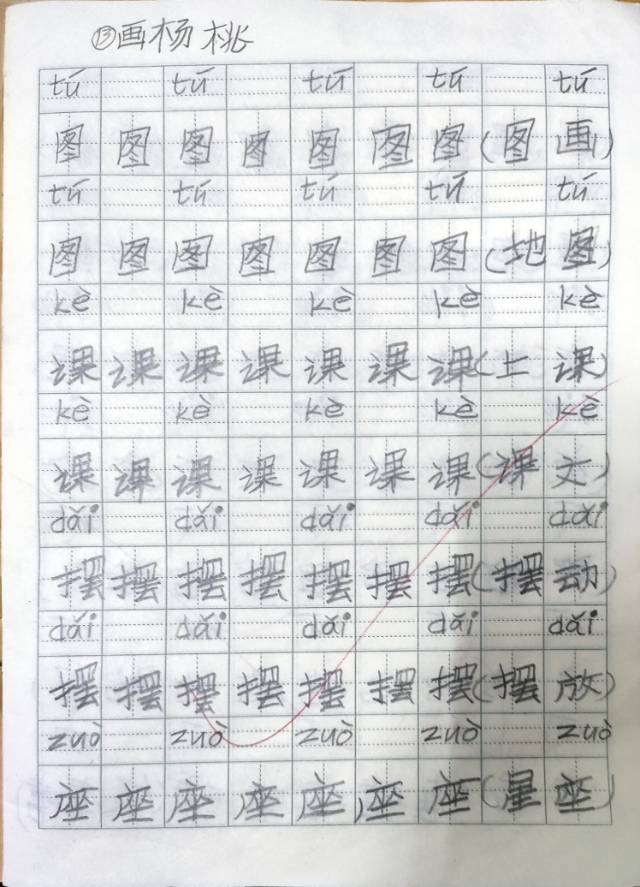 ⑬画杨桃
tú tú tú tú tú
图图图图图图图(图画)
tú tú tú tú tú
图图图图图图图(地图)
kè kè kè kè kè
课课课课课课课(上课)
kè kè kè kè kè
课课课课课课课(课文)
dǎi dǎi dǎi dǎi dǎi
摆摆摆摆摆摆摆(摆动)
dǎi dǎi dǎi dǎi dǎi
摆摆摆摆摆摆摆(摆放)
zuò zuò zuò zuò zuò
座座座座座座座(星座)